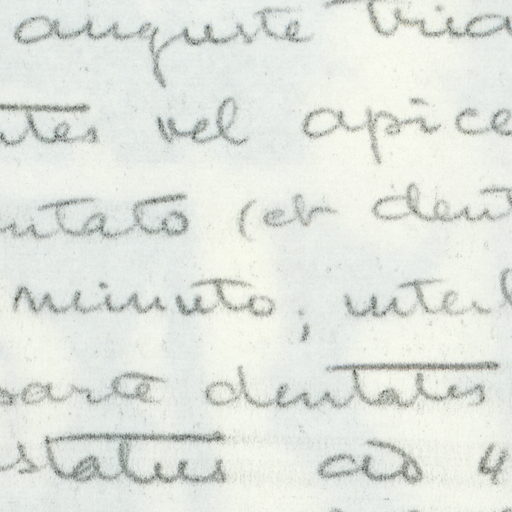 anguste tria
ntes vel apice
ntato (et dent
minuto; inter
parte dentatis
statu ad 4